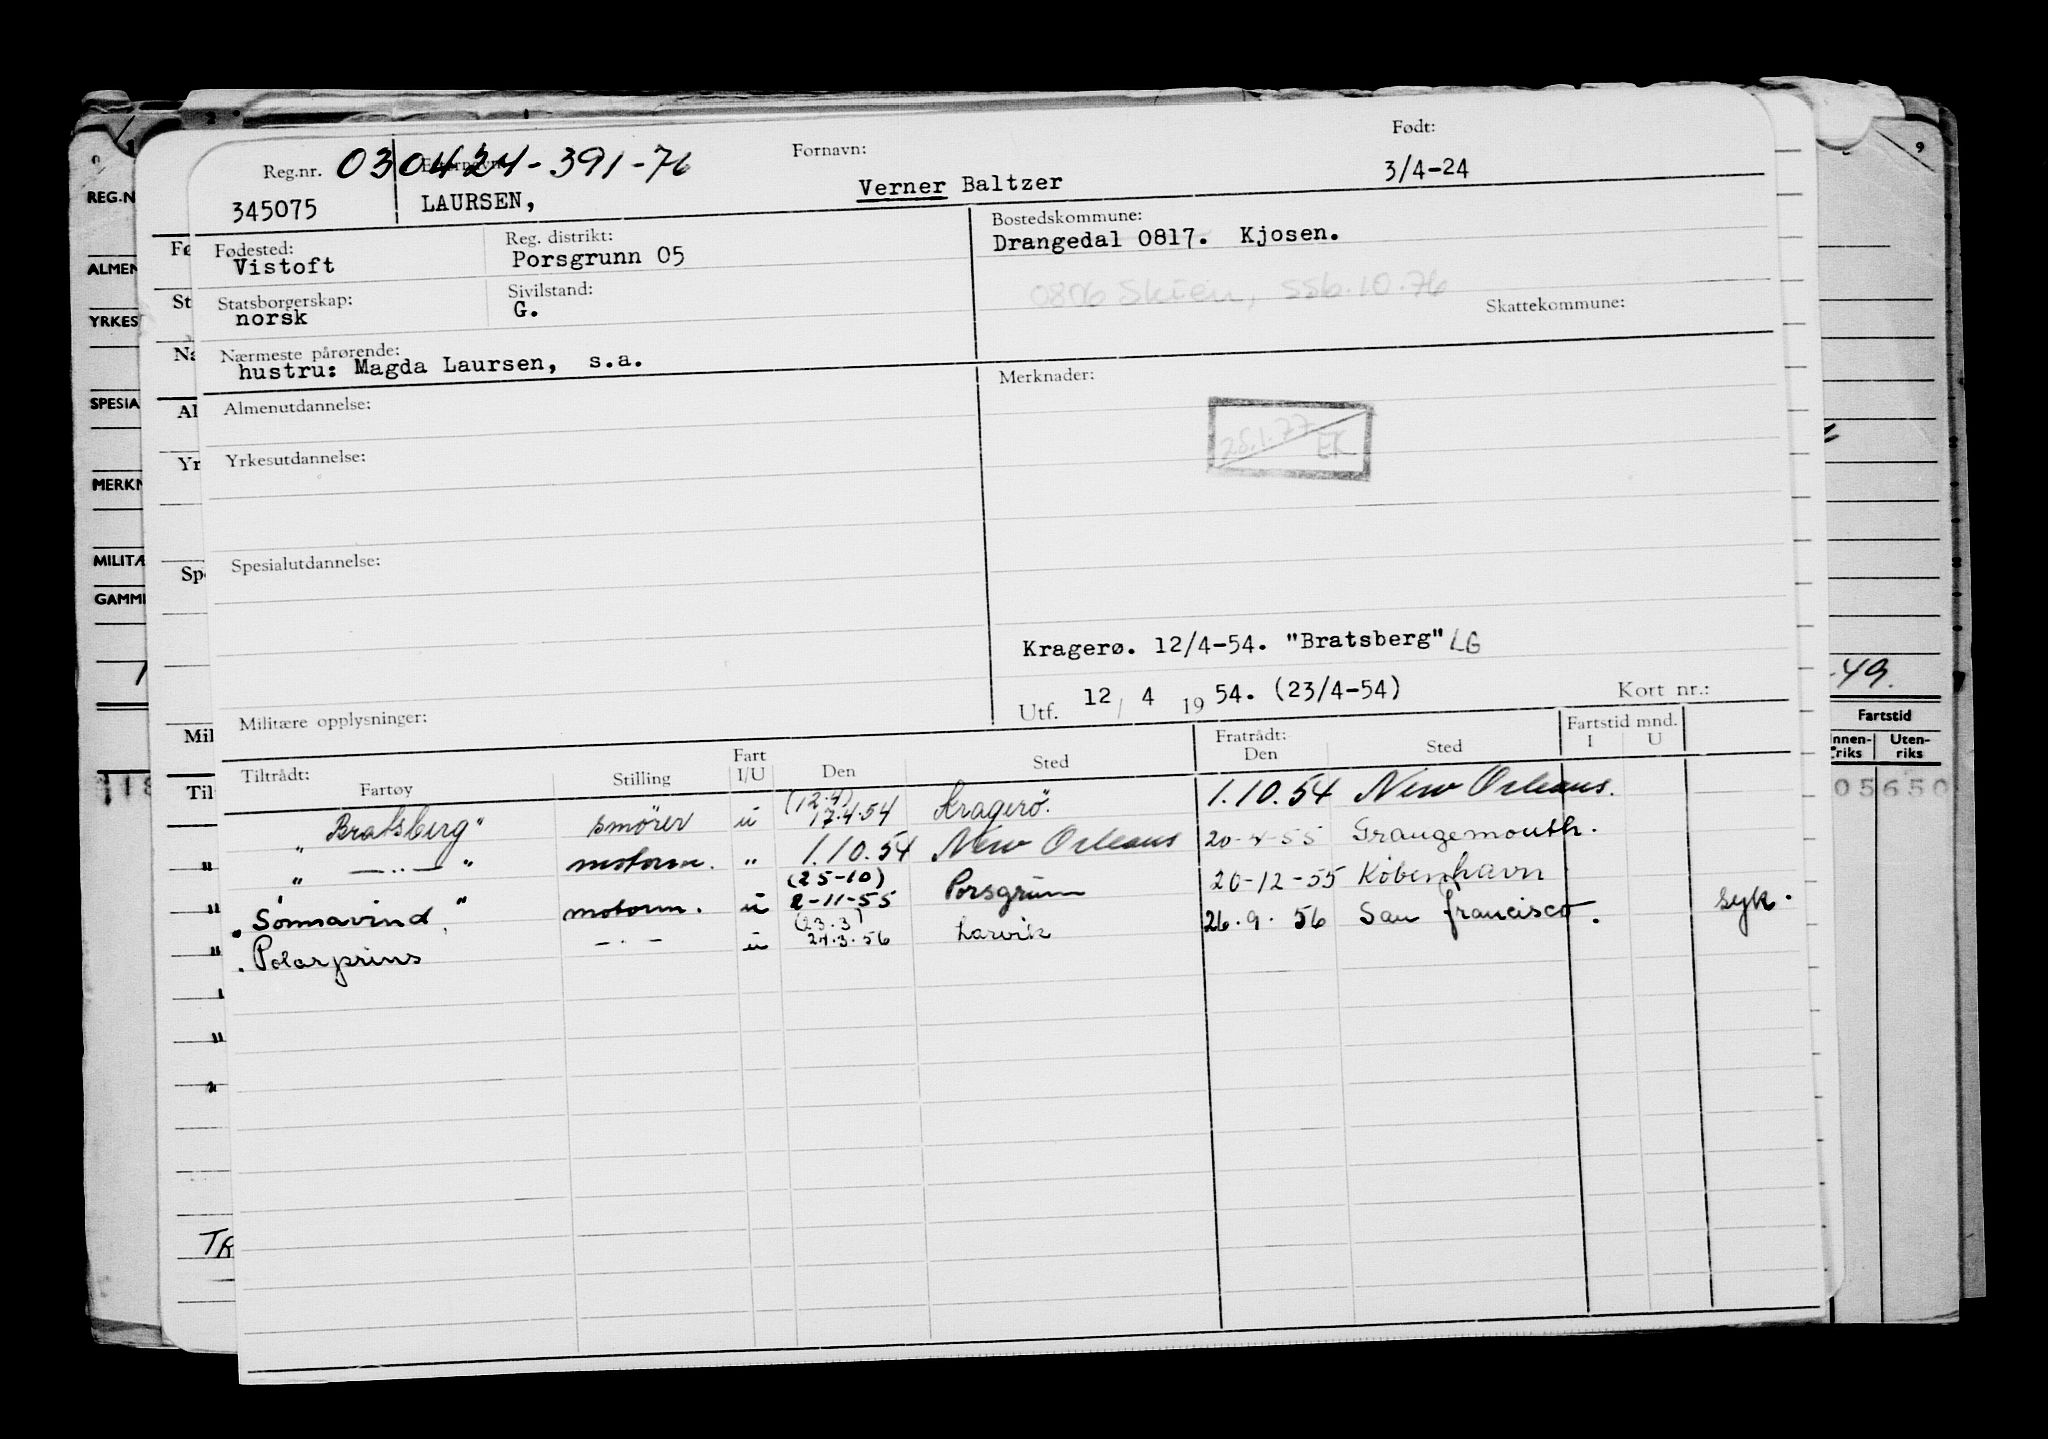 Født:
Reg.nr. 030424-391-76 Fornavn:
3/4-24
345075 LAURSEN, Verner Baltzer
Bostedskommune:
Fødested: Reg. distrikt:
Drangedal 0817. Kjosen.
Vistoft Porsgrunn 05
0806 Skien, SSb.10.76
Statsborgerskap: Sivilstand:
norsk G.
Skattekommune:
Nærmeste pårørende:
hustru: Magda Laursen, s.a.
Merknader:
Almenutdannelse:
28.1.77 EK
Yrkesutdannelse:
Spesialutdannelse:
Kragerø. 12/4-54. "Bratsberg" LG
Utf. 12 / 4 19 54. (23/4-54) Kort nr.:
Militære opplysninger:
Tiltrådt: Fratrådt: Fartstid mnd.
Fartøy Stilling Fart I/U Den Sted Den Sted I U
"Bratsberg" smører u (12.4) 17.4.54 Kragerö. 1.10.54 New Orleans.
" —"— " motorm. " 1.10.54 New Orleans 20-4-55 Grangemouth.
"Sönnavind" motorm. u (25-10) 2-11-55 Porsgrunn 20-12-55 Köbenhavn
"Polarprins —"— u (23.3) 24.3.56 Larvik 26.9.56 San Francisco. syk.
REG.N
ALMEN
YRKES
SPESIA
MERKN
MILITÆ
GAMM
Fø
St
Na
Al
Yr
Sp
Mil
Til
TR
9
-49.
Fartstid
Innen-riks Uten-riks
05650